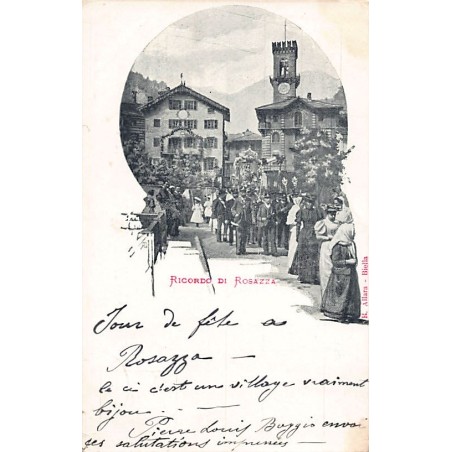 RICORDO DI ROSAZZA
R. Allara - Biella
Jour de fête as
Rosazza —
le ci c'est une village vraiment
bijou. —
Pierre Louis Boggio envoi
ses salutations